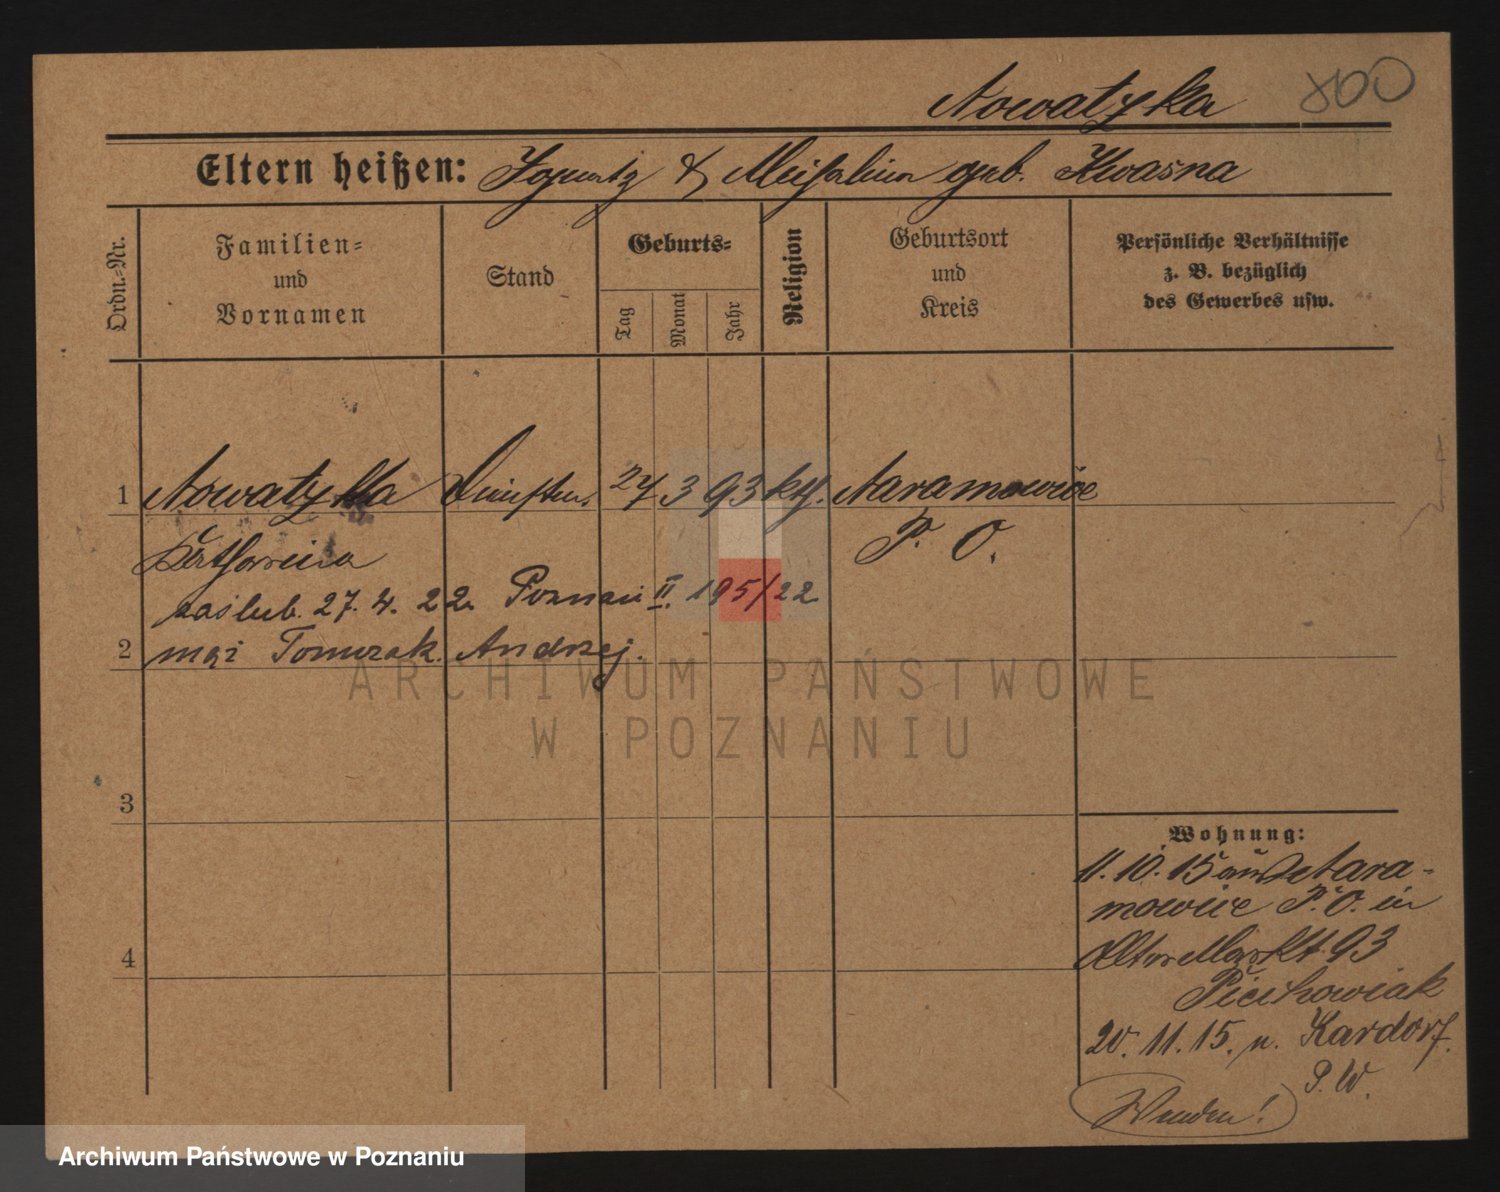 Nowatzka 800
Eltern heißen: Ignatz & geb. Kwasna
Ordn.-Nr.
Familien-
und
Vornamen
Stand
Geburts-
Tag
Monat
Jahr
Religion
Geburtsort
und
Kreis
Persönliche Verhältnisse
z. B. bezüglich
des Gewerbes usw.
1 Nowatzka 27 3 93 kth. Naramowice
Katharina P. O.
zaślub. 27. 4. 22. Poznań II. 195/22
2 mąż Tomczak Andrzej.
3
4
Wohnung:
11. 10. 15 aus Nara-
mowice P. O. in
Alter Markt 93
Piechowiak
20. 11. 15. n. Kardorf.
P. W.
Wenden!
ARCHIWUM PAŃSTWOWE
W POZNANIU
Archiwum Państwowe w Poznaniu